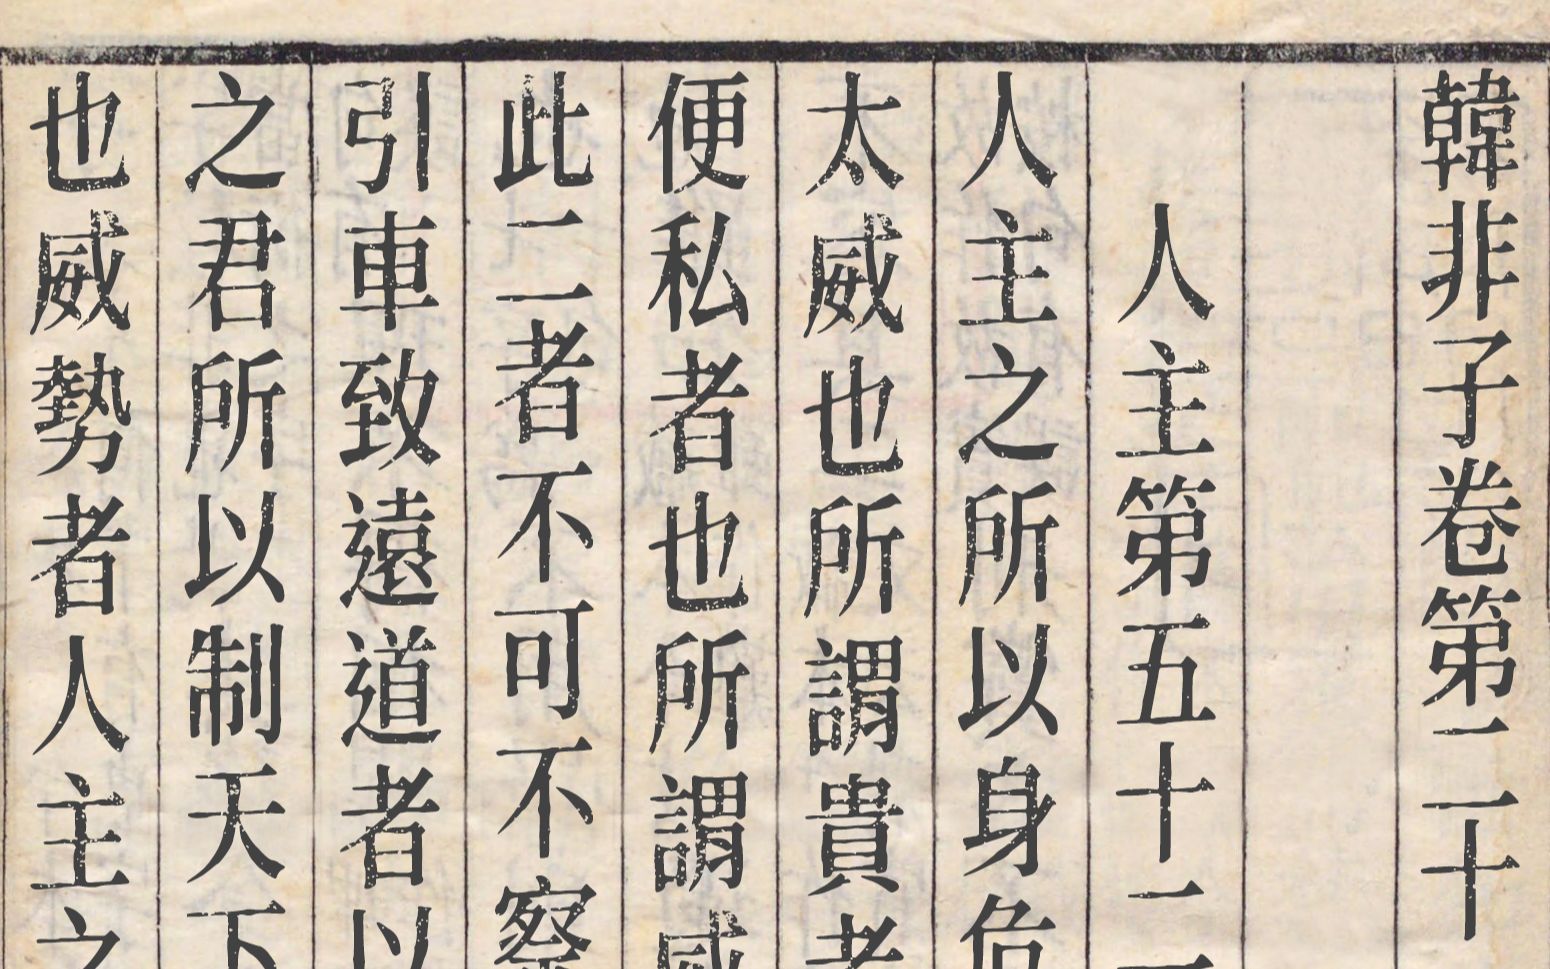 韓非子卷第二十
人主第五十二
人主之所以身危
太威也所謂貴者
便私者也所謂威
此二者不可不察
引車致遠道者以
之君所以制天下
也威勢者人主之